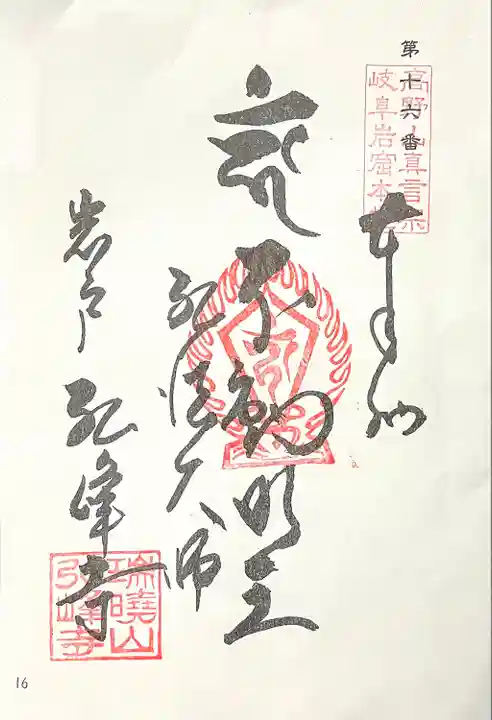 第十六番
高野山真言宗
岐阜岩窟本
奉拝
不動明王
弘法大師
岩戸 弘峰寺
瑞曉山
弘峰寺
16